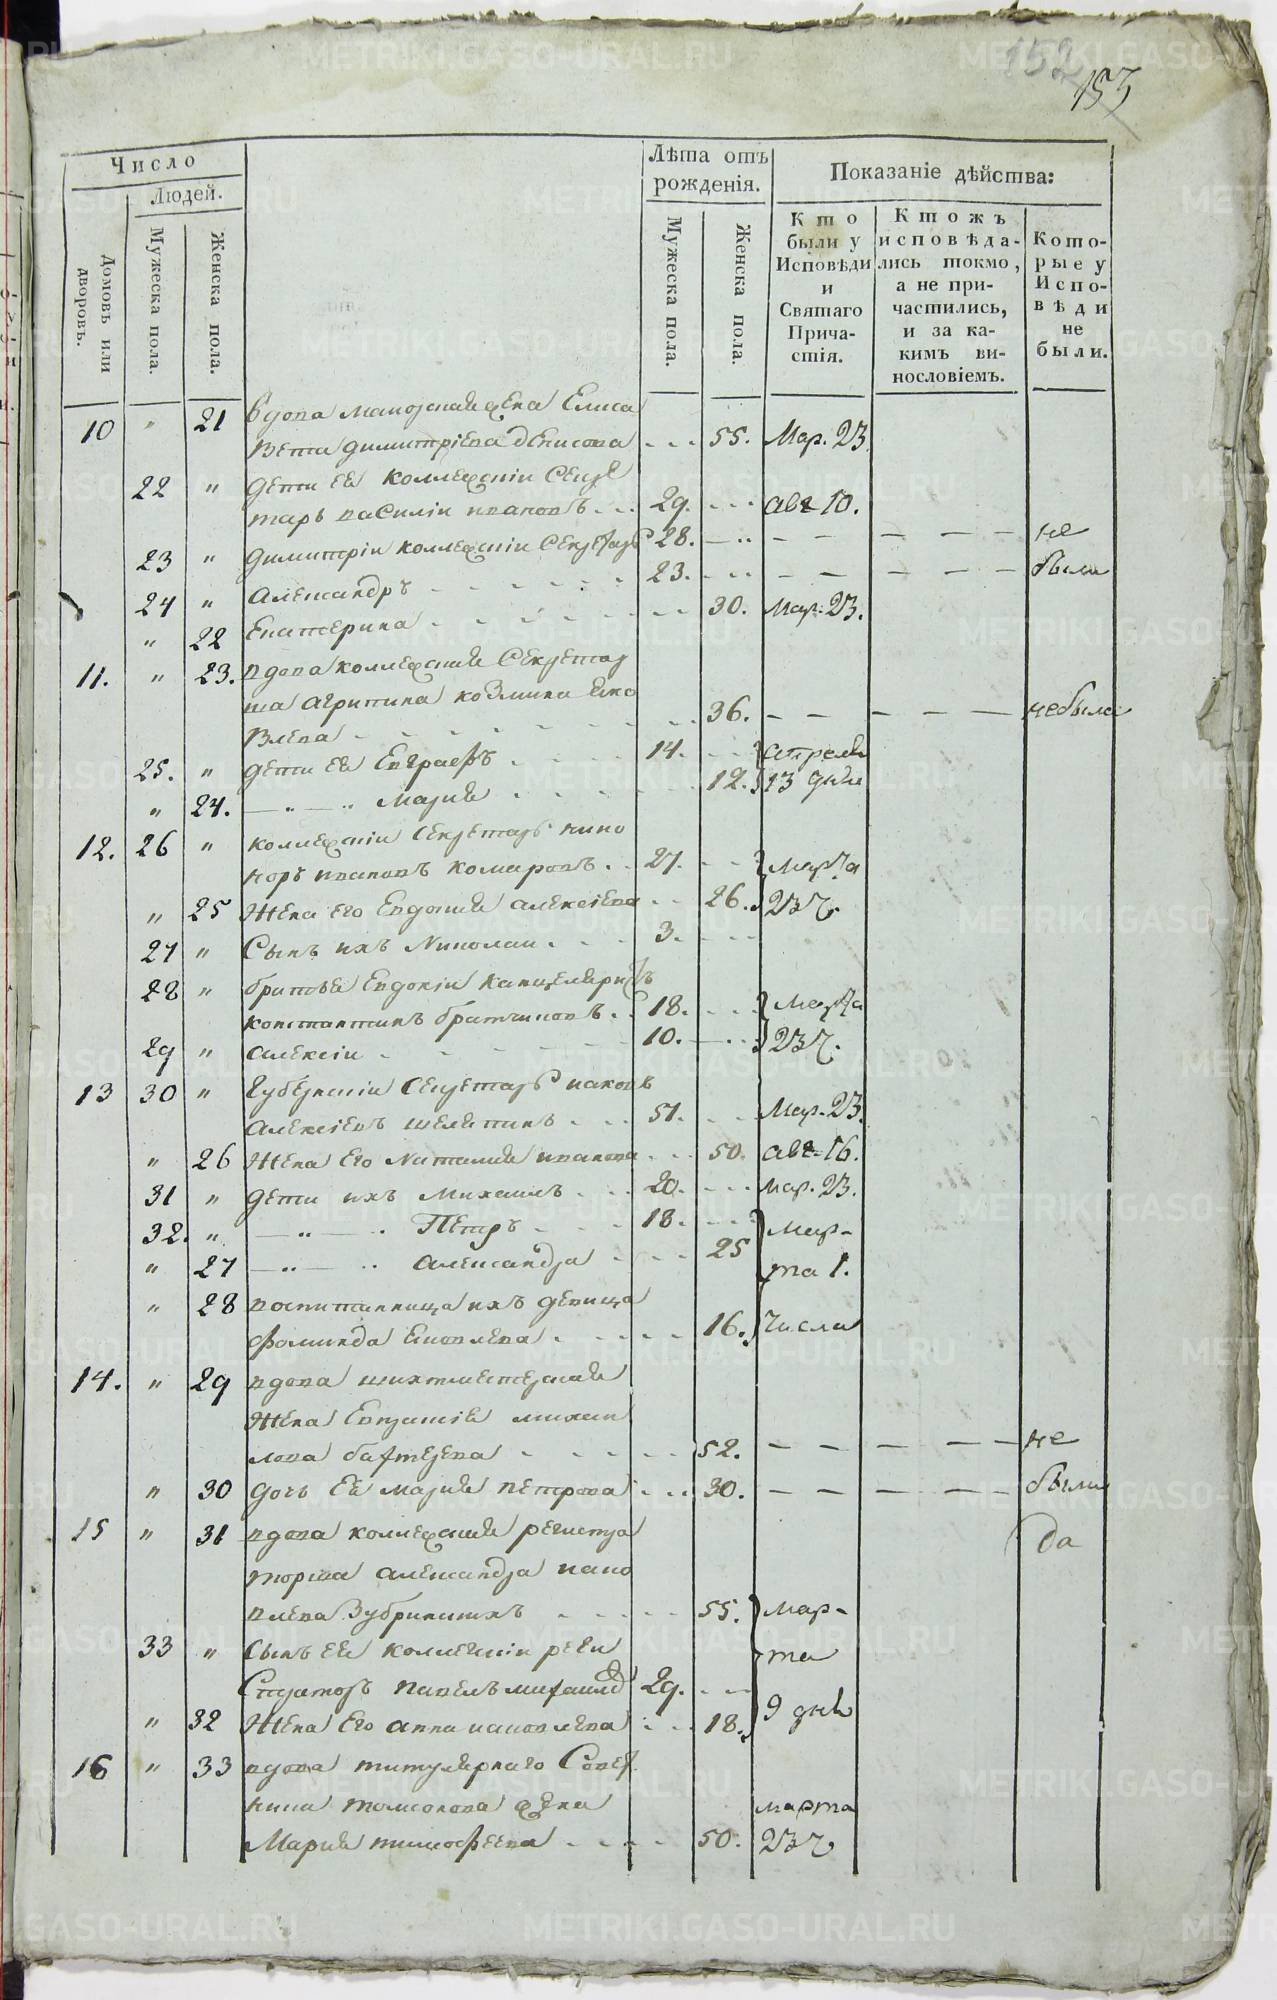 152
153
Число
Людей.
Домовъ или дворовъ.
Мужеска пола.
Женска пола.
Лѣта отъ рожденія.
Мужеска пола.
Женска пола.
Показаніе дѣйства:
Кто были у Исповѣди и Святаго Причастія.
Ктожъ исповѣдались токмо, а не причастились, и за какимъ винословіемъ.
Которые у Исповѣди не были.
10 " 21 вдова маиорская жена Елиса
вета димитріева денисова 55. Мар. 23.
22 " дети ее коллежскіи Секре
тарь василіи ивановъ 29. авг 10.
23 " димитріи коллежскіи Секретарь 28. не
24 " александръ 23. были
" 22 Екатерина 30. Мар. 23.
11. " 23. вдова коллежская Секретар
ша агрипина козмина яко
влева 36. не была
25. " дети ея Евграфъ 14. апреля
" 24. " Марія 12. 13 дня
12. 26 " коллежскіи Секретарь нико
норъ ивановъ комаровъ 27. марта
" 25 Жена его Евдокия алексіева 26. 23 ч.
27 " Сынъ ихъ Николаи 3.
28 " братья Евдокіи канцеляристъ
константинъ братчиковъ 18. марта
29 " алексіи 10. 23 ч.
13 30 " Губернскіи Секретарь иаковъ
алексіевъ шелятинъ 51. Мар. 23.
" 26 Жена его Наталия иванова 50. авг 16.
31 " дети ихъ Михаилъ 20. Мар. 23.
32. " " Петръ 18. Мар-
" 27 " александра 25 та 1.
" 28 воспитанница ихъ девица
Яковлева 16. числа
14. " 29 вдова шихтмеистерская
Жена Евпраксія михаи
лова 52. не
" 30 дочь ея Марія петрова 30. были
15 " 31 вдова коллежская регистра
торша александра иако
влева Зубрицкихъ 55. Мар-
33 " Сынъ ея коллежскіи реги та
страторъ павелъ михаилов 29. 9 дня
" 32 Жена его анна иаковлева 18.
да
16 " 33 вдова титулярнаго Совет
ника жена марта
Мария тимофеева 50. 23 ч
METRIKI.GASO-URAL.RU